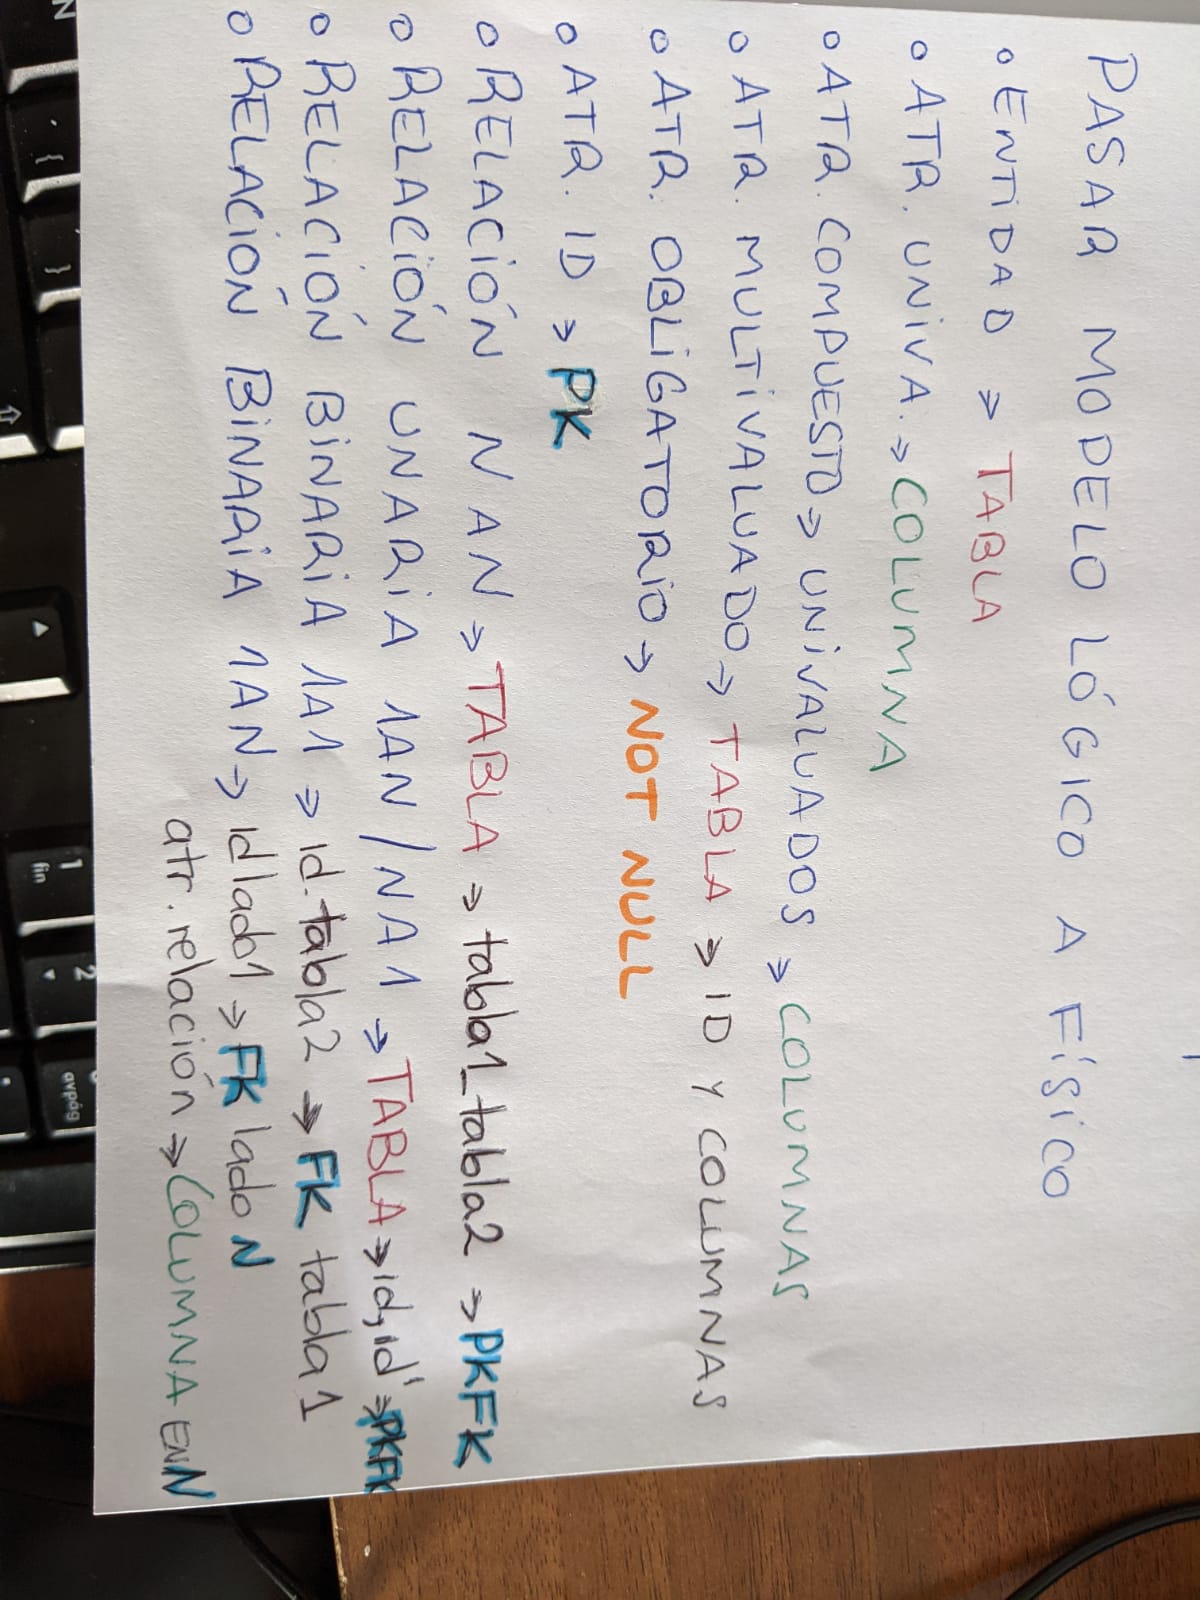 PASAR MODELO LÓGICO A FÍSICO
o ENTIDAD → TABLA
o ATR. UNIVA. → COLUMNA
o ATR. COMPUESTO → UNIVALUADOS → COLUMNAS
o ATR. MULTIVALUADO → TABLA → ID Y COLUMNAS
o ATR. OBLIGATORIO → NOT NULL
o ATR. ID → PK
o RELACIÓN N A N → TABLA → tabla1_tabla2 → PKFK
o RELACIÓN UNARIA 1AN/NA1 → TABLA → id, id' → PKFK
o RELACIÓN BINARIA 1A1 → id.tabla2 → FK tabla1
o RELACIÓN BINARIA 1AN → id lado1 → FK lado N
atr. relación → COLUMNA EN N
N
{
}
1
fin
2
avpág